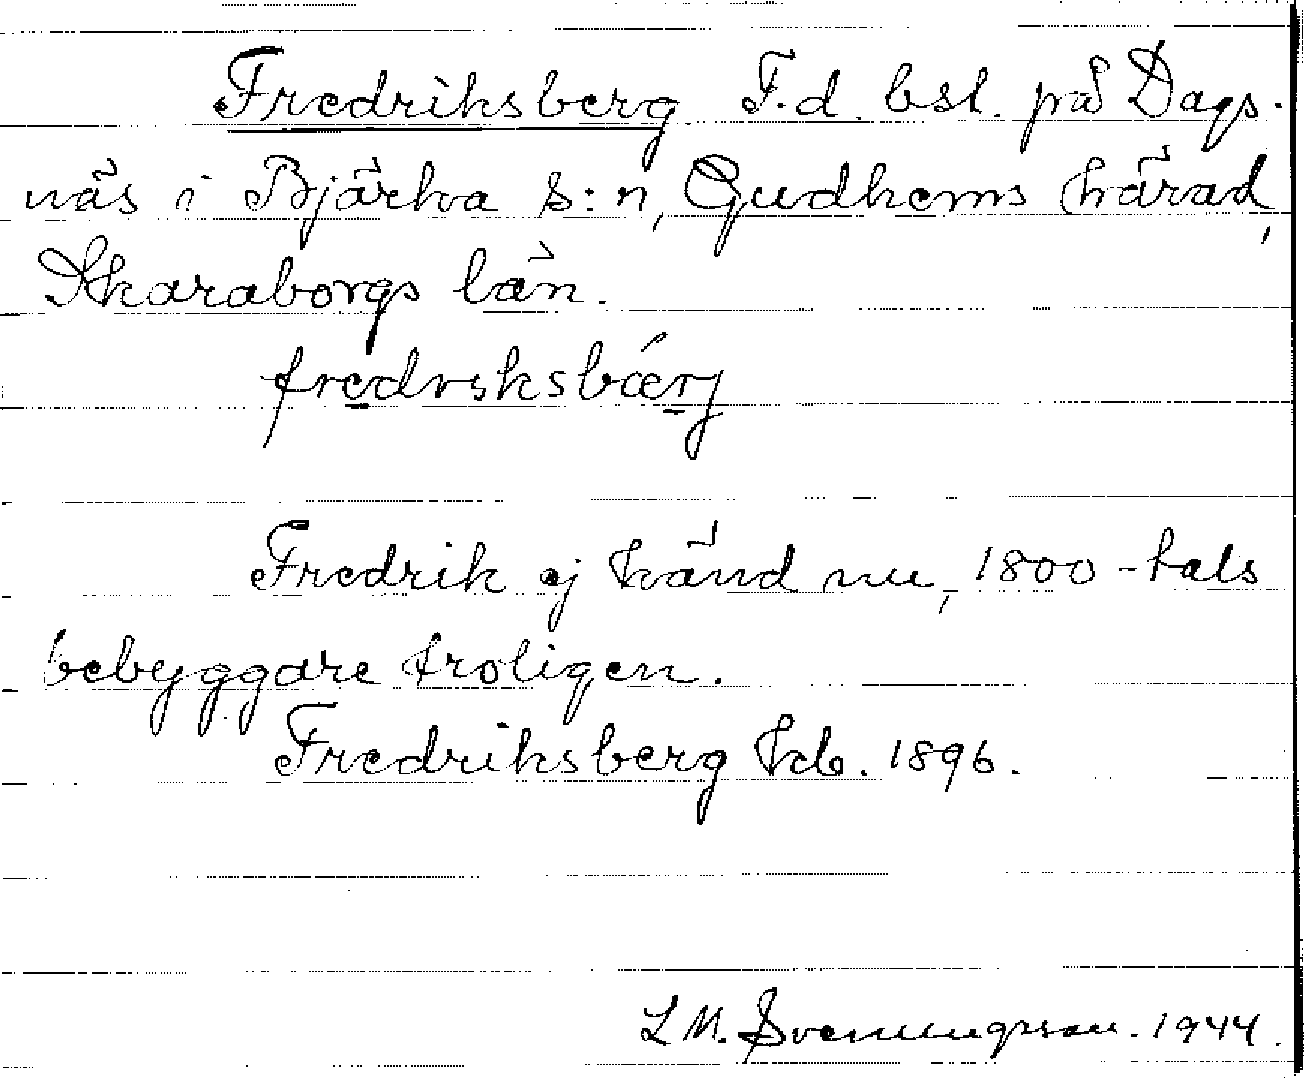 Fredriksberg F.d. bsl. på Dags-
näs i Bjärka s:n, Gudhems härad,
Skaraborgs län.
fredrsksbærj
Fredrik ej känd nu, 1800-tals
bebyggare troligen.
Fredriksberg Jdb. 1896.
L M. Svenungsson. 1944.